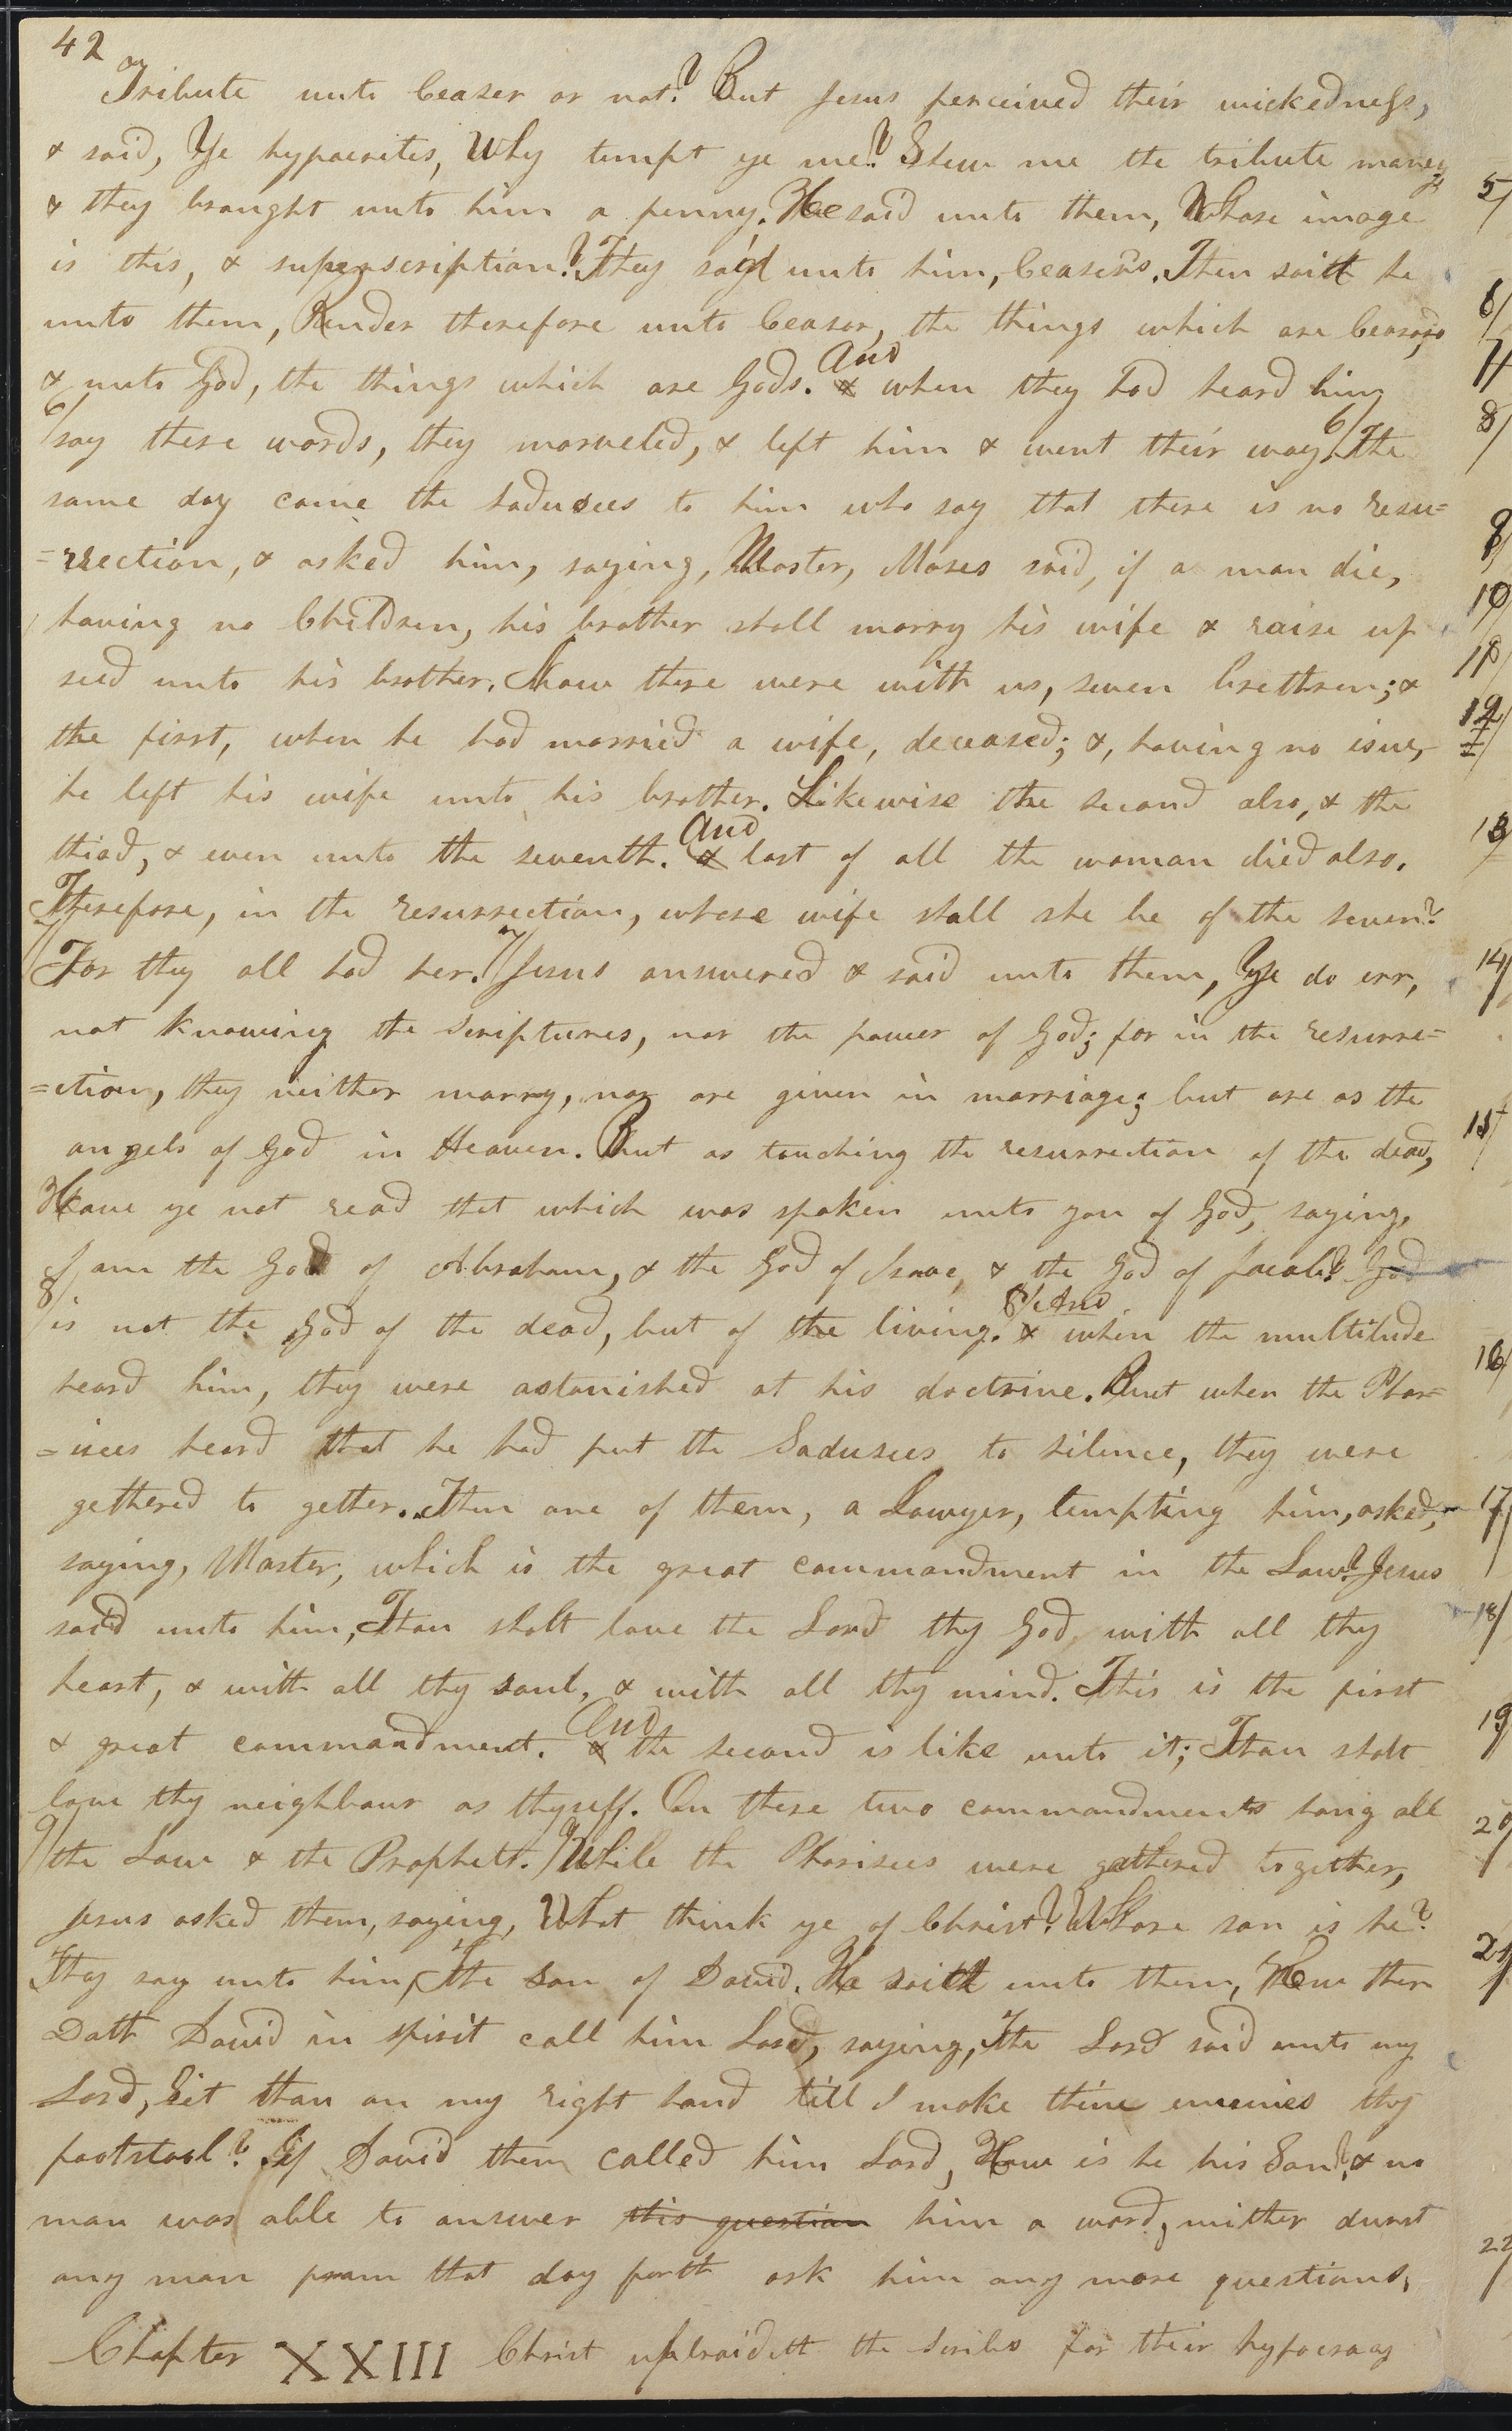 42
Tribute unto Ceaser or not? But Jesus perceived their wickedness,
& said, Ye hypocrites, Why tempt ye me? Shew me the tribute money
& they brought unto him a penny. He said unto them, Whose image
is this, & superscription? They said unto him, Ceasers. Then saith he
unto them, Render therefore unto Ceasar, the things which are Ceasars,
& unto God, the things which are Gods. & And when they had heard him
6/ say these words, they marveled, & left him & went their way. 6/ The
same day came the sadusees to him who say that there is no resu=
=rrection, & asked him, saying, Master, Moses said, if a man die,
having no Children, his brother shall marry his wife & raise up
seed unto his brother. Now there were with us, seven brethren; &
the first, when he had married a wife, deceased; &, having no isue,
he left his wife unto his brother. Likewise the second also, & the
third, & even unto the seventh. & And last of all the woman died also.
Therefore, in the resurrection, whose wife shall she be of the seven?
7/ For they all had her. 7/ Jesus answered & said unto them, Ye do err,
not knowing the scriptures, nor the power of God; for in the resurre=
=ction, they neither marry, nor are given in marriage; but are as the
angels of God in Heaven. But as touching the resurrection of the dead,
Have ye not read that which was spoken unto you of God, saying,
I am the God of Abraham, & the God of Isaac, & the God of Jacob? God
8/ is not the God of the dead, but of the living. & 8/ And when the multitude
heard him, they were astonished at his doctrine. But when the Phar=
=isees heard that he had put the Sadusees to silence, they were
gethered to gether. Then one of them, a Lawyer, tempting him, asked,
saying, Master, which is the great commandment in the Law? Jesus
said unto him, Thou shalt love the Lord thy God with all thy
heart, & with all thy soul, & with all thy mind. This is the first
& great commandment. & And the second is like unto it; Thou shalt
love thy neighbour as thyself. On these two commandments hang all
9/ the Law & the Prophets. 9/ While the Pharisees were gathered together,
Jesus asked them, saying, What think ye of Christ? Whose son is he?
They say unto him, The Son of David. He saith unto them, How then
Doth David in spirit call him Lord, saying, The Lord said unto my
Lord, Sit thou on my right hand till I make thine enemies thy
footstool? If David them called him Lord, How is he his Son? & no
man was able to answer this question him a word, neither durst
any man from that day forth ask him any more questions,
Chapter XXIII Christ upbraideth the scribes for their hypocracy
5/
6/
7/
8/
9/
10/
11/
12/
13
14/
15
16/
17/
18/
19
20
21
22